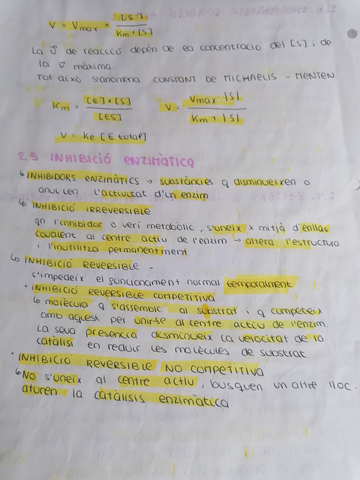 V = Vmax · [S] / Km + [S]
La v de reacció depèn de la concentració del [S] i de
la v màxima
Tot això s'anomena CONSTANT DE MICHAELIS - MENTEN
Km = [E] x [S] / [ES]   V = Vmax [S] / Km + [S]
V = Ke [E total]
2.5 INHIBICIÓ ENZIMÀTICA
INHIBIDORS ENZIMÀTICS → substàncies q disminueixen o
anul·len l'activitat d'un enzim
INHIBICIÓ IRREVERSIBLE
qn l'inhibidor o verí metabòlic, s'uneix x mitjà d'enllaç
covalent al centre actiu de l'enzim → altera l'estructura
i l'inutilitza permanentment
INHIBICIÓ REVERSIBLE -
s'impedeix el funcionament normal temporalment
· INHIBICIÓ REVERSIBLE COMPETITIVA
molècula q s'assembli al substrat i q competeix
amb aquest per unirse al centre actiu de l'enzim.
La seva presència disminueix la velocitat de la
catàlisi en reduir les molècules de substrat
· INHIBICIÓ REVERSIBLE NO COMPETITIVA
No s'uneix al centre actiu, busquen un altre lloc.
aturen la catàlisis enzimàtica.